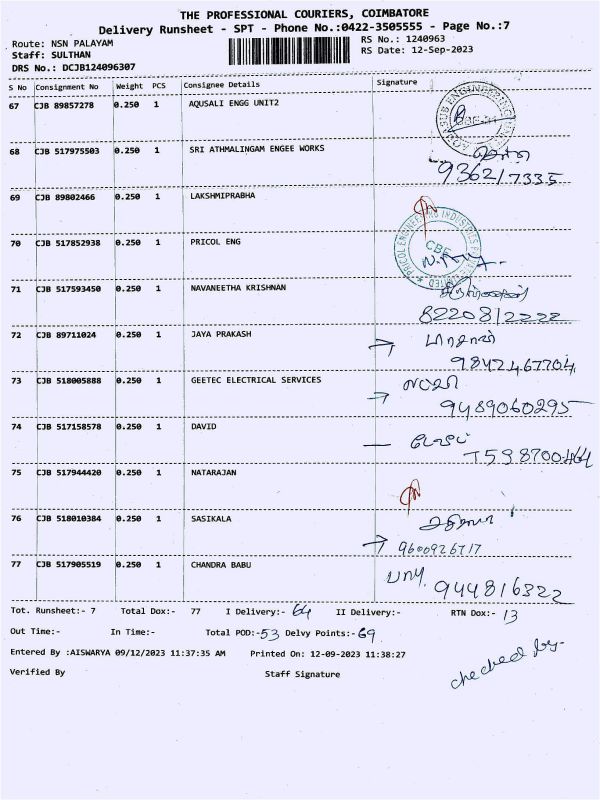 THE PROFESSIONAL COURIERS, COIMBATORE
Delivery Runsheet - SPT - Phone No.:0422-3505555 - Page No.:7
Route: NSN PALAYAM RS No.: 1240963
Staff: SULTHAN RS Date: 12-Sep-2023
DRS No.: DCJB124096307
S No Consignment No Weight PCS Consignee Details Signature
67 CJB 89857278 0.250 1 AQUSALI ENGG UNIT2
68 CJB 517975503 0.250 1 SRI ATHMALINGAM ENGEE WORKS
936217335
69 CJB 89802466 0.250 1 LAKSHMIPRABHA
70 CJB 517852938 0.250 1 PRICOL ENG
CBE
71 CJB 517593450 0.250 1 NAVANEETHA KRISHNAN
8220812222
72 CJB 89711024 0.250 1 JAYA PRAKASH
9842467704
73 CJB 518005888 0.250 1 GEETEC ELECTRICAL SERVICES
9489060295
74 CJB 517158578 0.250 1 DAVID
75 CJB 517944420 0.250 1 NATARAJAN
76 CJB 518010384 0.250 1 SASIKALA
9600926717
77 CJB 517905519 0.250 1 CHANDRA BABU
944816322
Tot. Runsheet:- 7 Total Dox:- 77 I Delivery:- 64 II Delivery:- RTN Dox:- 13
Out Time:- In Time:- Total POD:-53 Delvy Points:-69
Entered By :AISWARYA 09/12/2023 11:37:35 AM Printed On: 12-09-2023 11:38:27
Verified By Staff Signature
checked by-